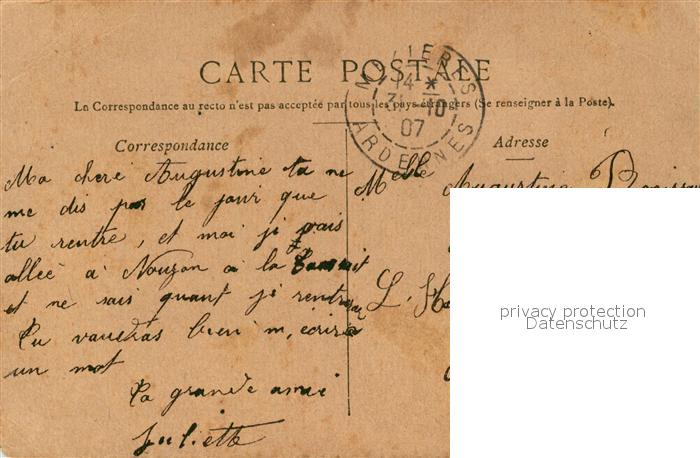 CARTE POSTALE
La Correspondance au recto n'est pas acceptée par tous les pays étrangers (Se renseigner à la Poste).
MEZIERES
14 *
31 -10
07
ARDENNES
Correspondance
Ma cheré Augustine tu ne
me dis pas le jour que
tu rentre, et moi je vais
allée à Nouzon a la
et ne sais quant je rentrerai
Tu vaudras bien m, écrire
un mot
Ta grande amie
Juliette
Adresse
Melle Augustine
L.
privacy protection
Datenschutz